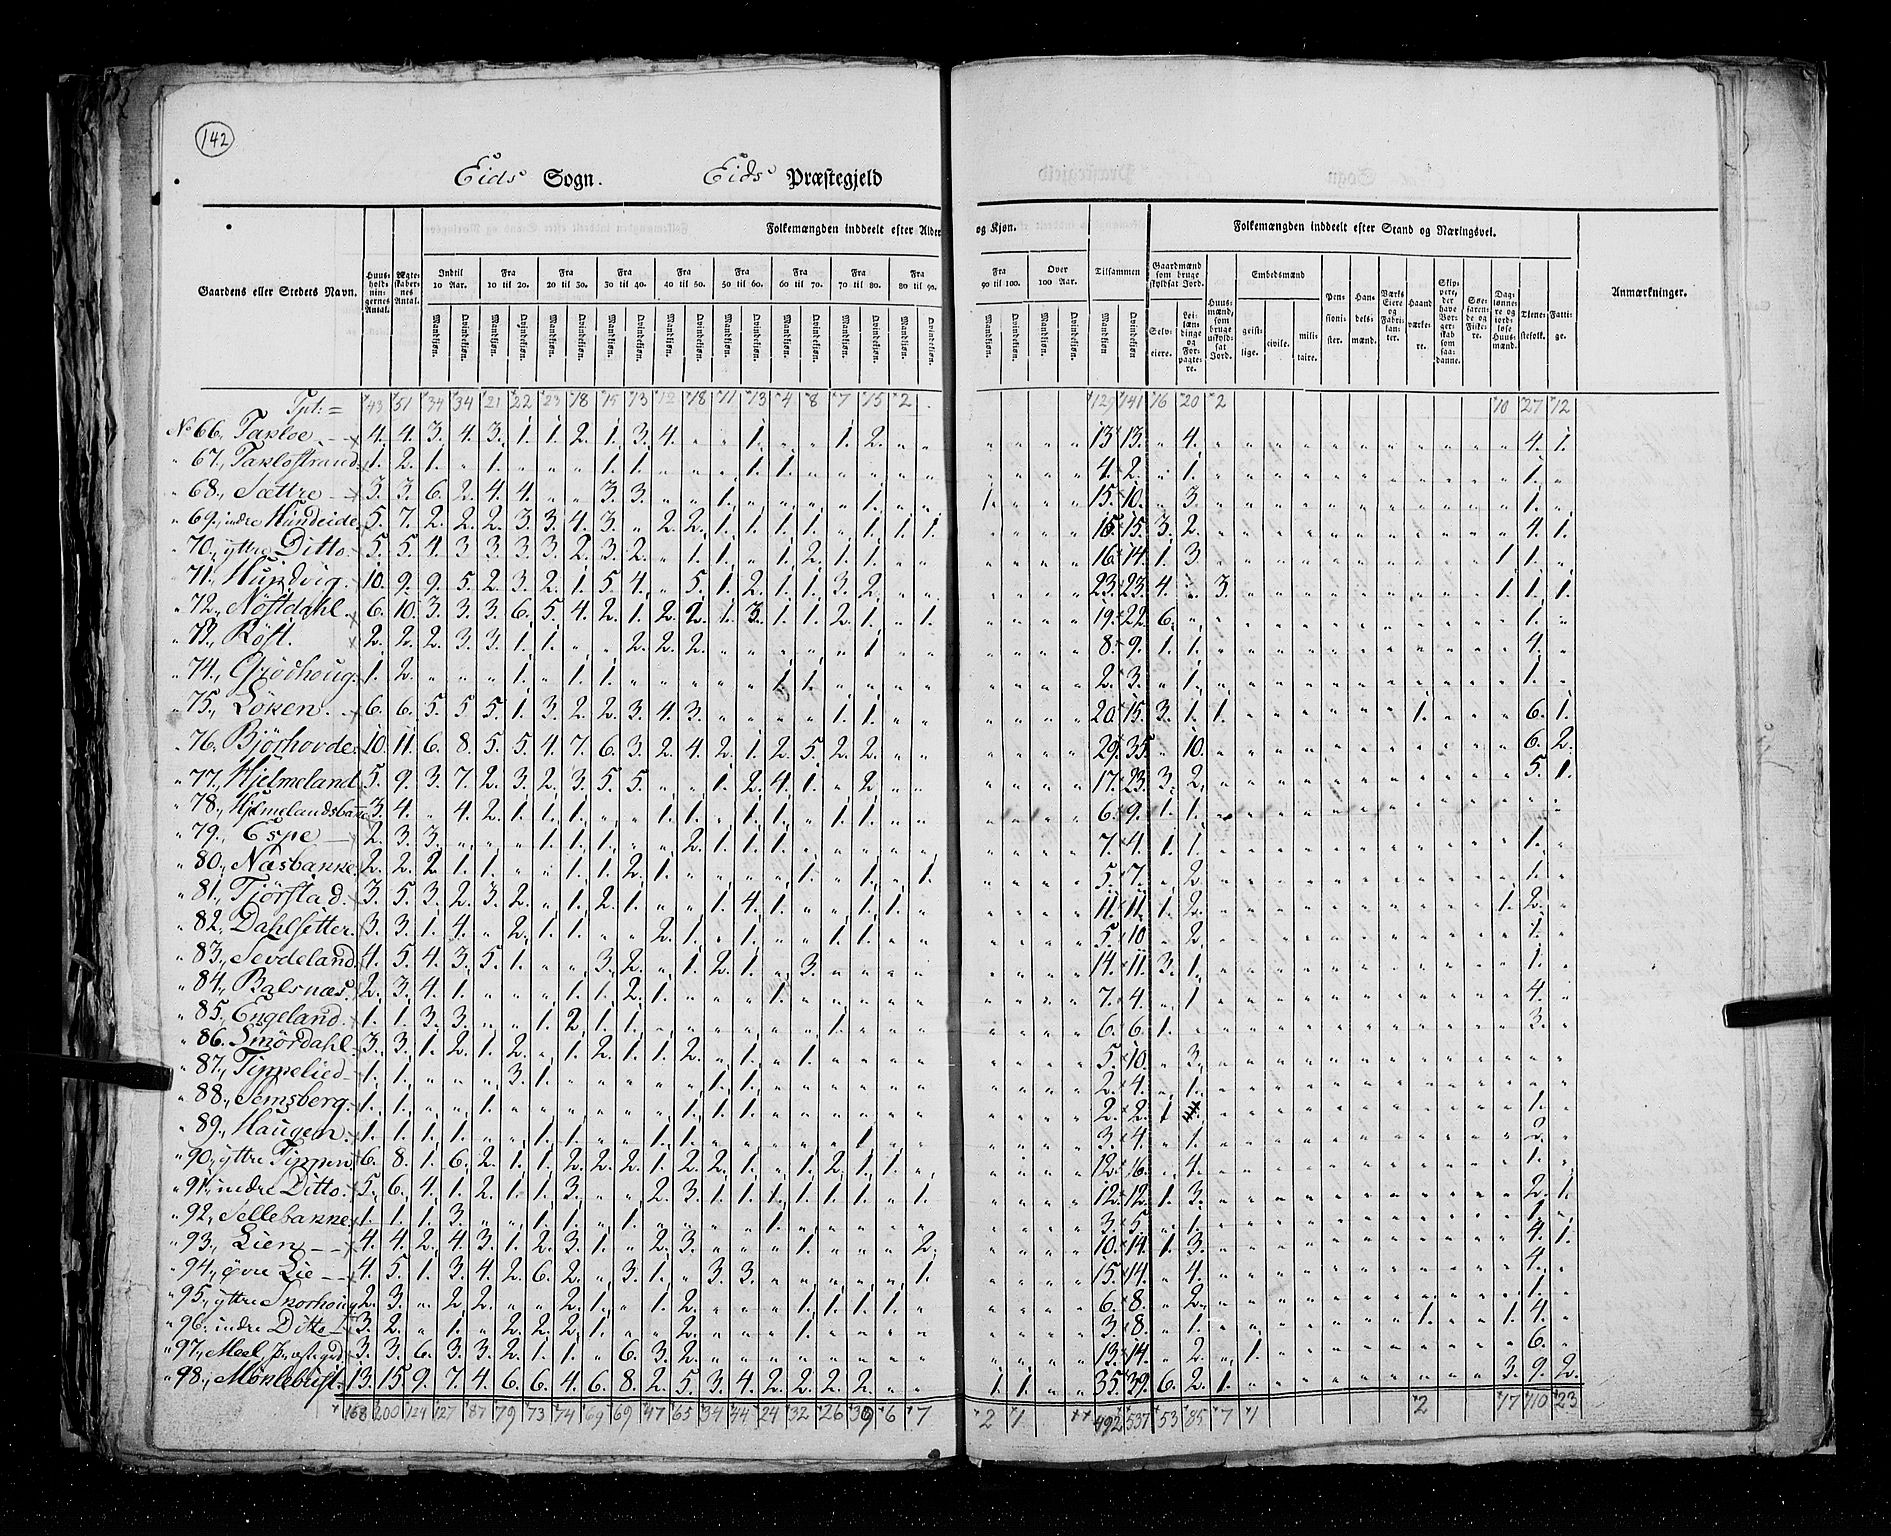 142
Eids Sogn. Eids Præstegjeld
Folkemængden inddeelt efter Alder og Kjøn. Folkemængden inddeelt efter Stand og Næringsvei.
Gaardens eller Stedets Navn. Huusholdningernes Antal. Ægteskabernes Antal. Indtil 10 Aar. Fra 10 til 20. Fra 20 til 30. Fra 30 til 40. Fra 40 til 50. Fra 50 til 60. Fra 60 til 70. Fra 70 til 80. Fra 80 til 90. Fra 90 til 100. Over 100 Aar. Tilsammen Gaardmænd som bruge skyldsat Jord. Huusmænd, som bruge uskyldsat Jord. Embedsmænd Pensionister. Handelsmænd. Værks Eiere og Fabrikanter. Haandværkere. Skippere, der have Borgerskab som saadanne. Søefarende og Fiskere. Daglønnere og jordløse Huusmænd. Tjenestefolk. Fattige. Anmærkninger.
Mandkjøn. Qvindekjøn. Selveiere. Leilændinge og Forpagtere. geistlige. civile. militaire.
Tpt: = 43 51 34 34 21 22 23 18 15 13 12 18 11 13 4 8 7 15 2 129 141 16 20 2 10 27 12
No 66, Taxloe 4. 4. 3. 4. 3. 1. 1. 2. 1. 3. 4. " " 1. " " 1. 2. " " 13 13. " 4. 4. 1.
" 67, Taxlostrand 1. 2. 1. " 1. " " " 1. 1. " " " 1. 1. 4. 2. " 1. 1. "
" 68, Sættre 3. 3. 6. 2. 4. 4. " " 3. 3. " " 1. " " " " 1. " " 1. 15. 10. " 3. 1. "
" 69, indre Hundeide 5. 7. 2. 2. 2. 3. 3. 4. 3. " 2. 2. 1. 1. 1. 1. " 1. 1. 1. 16. 15. 3. 2. 4. 1.
" 70, yttre Ditto 5. 5. 4. 3. 3. 3. 3. 2. 3. 2. " 1. 1. " 1. 2. 1. 1. " " 16. 14. 1. 3. 1. 1. "
" 71, Hundvig. 10. 9. 9. 5. 2. 3. 2. 1. 5. 4. " 5. 1. 2. 1. 1. 3. 2. " " 23. 23. 4. " 3. 1. 1. 1.
" 72, Nöstdahl 6. 10. 3. 3. 3. 6. 5. 4. 2. 1. 2. 2. 1. 3. 1. 1. 2. 1. " 1. 19. 22. 6. " 1. "
" 73, Röst. 2. 2. 2. 3. 3. 1. 1. " " 2. 2. 2. " " " " " 1. " " 8. 9. 1. 1. 4. "
" 74, Grödhoug. 1. 2. " " " 1. " 1. 1. " " " " " 1. 1. " " " " 2. 3. " 1. 1. "
" 75, Löken. 6. 6. 5. 5. 5. 1. 3. 2. 2. 3. 4. 3. " " " " 1. 1. " " 20. 15. 3. 1. 1. 1. 6. 1.
" 76, Björhovde 10. 11. 6. 8. 5. 5. 4. 7. 6. 3. 2. 4. 2. 1. 2. 5. 2. 2. " " 29. 35. " 10. 6. 2.
" 77, Hjelmeland 5. 9. 3. 7. 2. 3. 2. 3. 5. 5. " " 1. 2. 4. 1. " 2. " " 17. 23. 3. 2. 5. 1.
" 78, Hjelmelandsbakke 3. 4. " 4. 2. 1. 1. 1. " " 1. 1. " 1. 1. 1. 1. 1. " " 6. 9. 1. 1. " "
" 79, Espe 2. 3. 3. " " " 1. 1. 1. " " 2. 1. 1. 1. " " " " " 7. 4. 1. 1. 1. "
" 80, Næsbakke 2. 2. 2. 1. 1. " " 1. 1. 2. 1. " " " " 1. " 1. " 1. 5. 7. " 2. " "
" 81, Tjörstad. 3. 5. 3. 2. 3. 2. " 1. 2. 1. " " 1. 4. 1. " " 1. 1. " 11. 11. 1. 2. 1. 2. "
" 82, Dahlsetter. 3. 3. 1. 4. " 2. 1. 1. " " 2. 1. " 1. " " 1. 1. " " 5. 10 " 2. 1. "
" 83, Sevdeland 4. 5. 4. 3. 5. 1. " " 3. 2. " 1. 2. 1. " 3. " " " " 14. 11. 3. 1. 1. "
" 84, Balsnæs. 2. 3. 4. 1. " " " 1. 1. 2. 1. " " " 1. " " " " " 7. 4. " 1. 4. "
" 85, Engeland. 1. 1. 3. 3. " " 1. 2. 1. 1. " " " " " " 1. " " " 6. 6. 1. 3. "
" 86. Smördahl. 3. 3. 1. 2. 1. 2. " 1. 2. 1. 1. 2. " 1. " 1. " " " " 5. 10. " 3. " "
" 87, Tippelied 1. 1. " " " 3. 1. " " " " " 1. 1. " " " " " " 2. 4. " 1. " "
" 88, Semsberg. 1. 1. " " 1. " " " " " " 1. 1. 1. " " " " " " 2. 2. 1 1. "
" 89, Haugen. 1. 1. 1. 1. " " 1. 1. " " 1. 1. " " " " " 1. " " 3. 4. " 1. 2. "
" 90, yttre Tippen 6. 8. 1. 6. 2. 1. 1. 2. 2. 2. 1. 2. 2. 1. " 1. 2. 1. 1. " 12. 16. " 4. 1. "
" 91, indre Ditto. 5. 6. 4. 1. 2. 1. 1. 3. " " 2. 3. 1. 1. 1. 1. 1. 1. " 1. 12. 12. 1. 3. 2. 1.
" 92, Sellebakke 1. 1. 1. 3. " " 1. 1. " 1. " " " " 1. " " " " " 3. 5. " 1. 1. "
" 93, Lien 4. 4. 2. 4. 3. 1. 2. 3. 1. " 2. 3. " " " 1. " " " 2. 10. 14. 1. 3. 4. 1.
" 94, øvre Lie 4. 5. 1. 3. 4. 2. 6. 2. " 3. 1. " 3. 3. " " " " " 1. 15. 14. " 4. 4. "
" 95, yttre Skorhoug 2. 3. " 2. 2. " " 2. 1. " 1. 2. " " " 1. 1. 1. 1. " 6. 8. " 2. 1. "
" 96. indre Ditto 3. 2. " 1. " 2. 2. 2. 1. " " 2. " " " 1. " " " " 3. 8. " 1. 1. 1. 4. "
" 97, Meel Præstegrd 3. 3. 6. 3. 3. 2. 1. 1. " 6. 3. 2. " " " " " " " " 13. 14. " 2. " 1. 6. "
" 98, Möklebust. 13. 15. 9. 7. 4. 6. 6. 4. 6. 8. 2. 5. 3. 4. 2. 2. 2. 2. " " 1. 1. " " 35. 39. 6. 2. 1. 3. 9. 2.
168 200 124 127 87 79 73 74 69 69 47 65 34 44 24 32 26 39 6 7 2 1 492 537 53 85 7 1 2 17 110 23